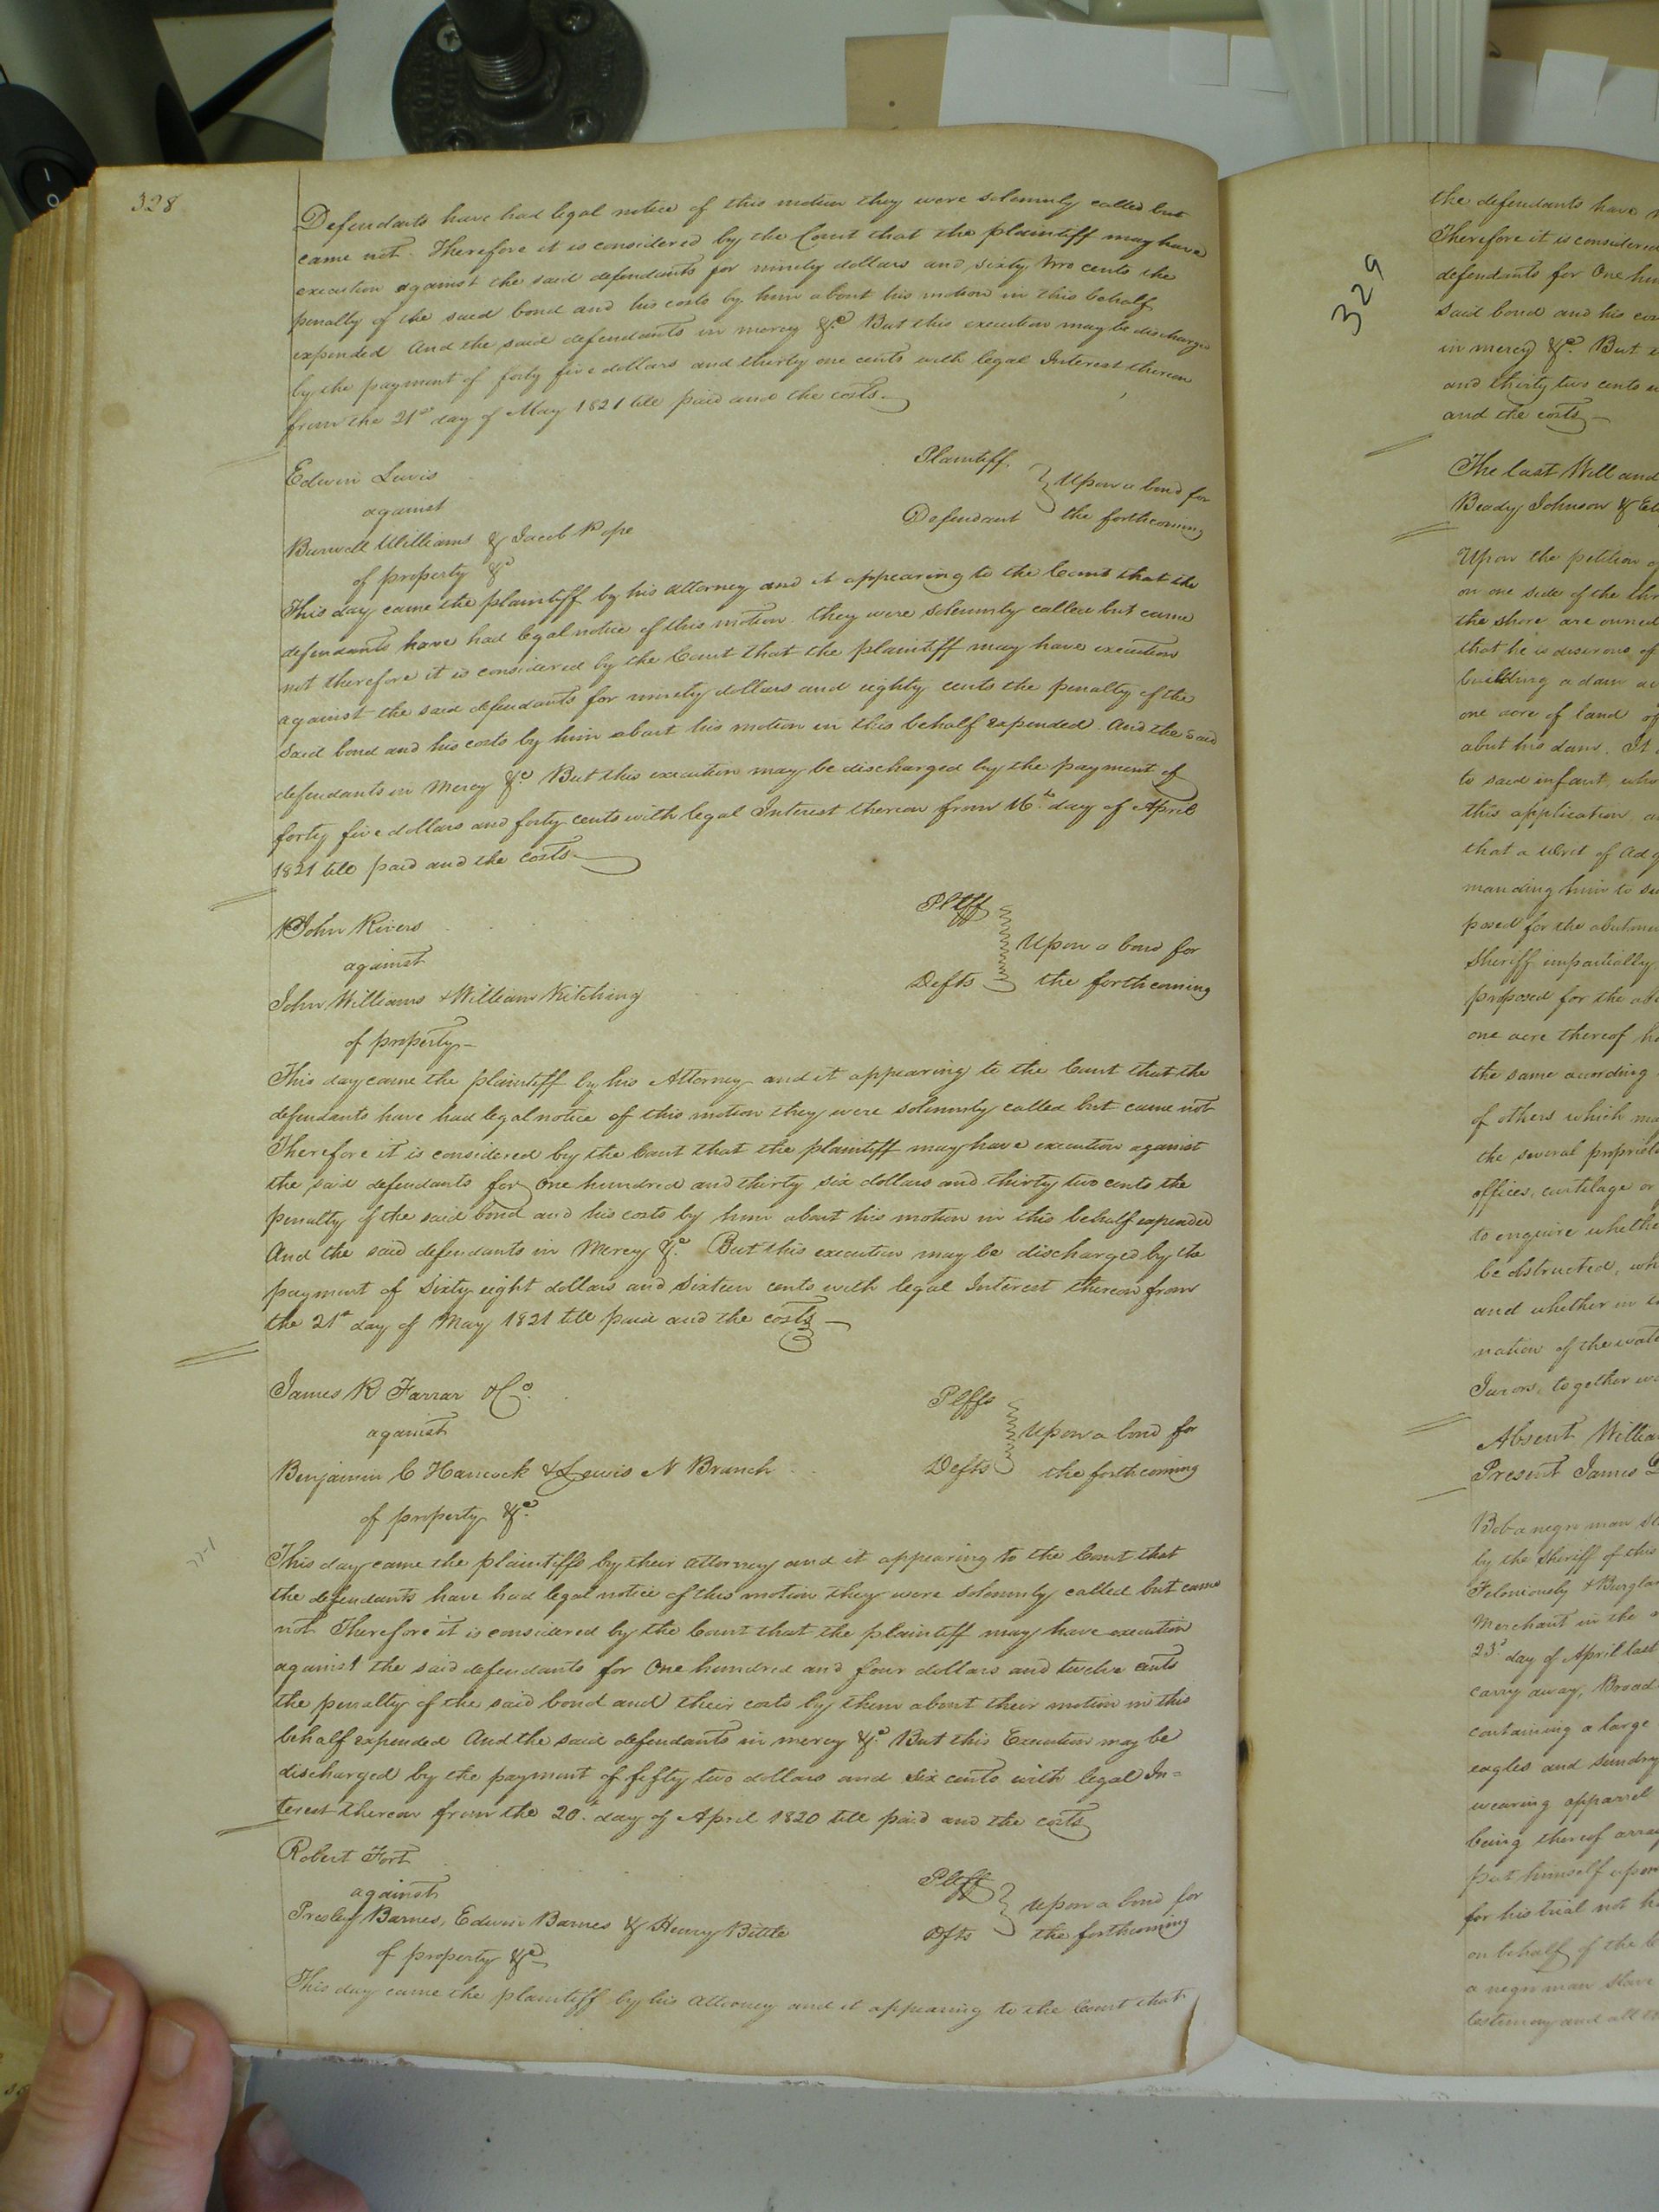 328
Defendants have had legal notice of this motion they were solemnly called but
came not. Therefore it is considered by the Court that the plaintiff may have
execution against the said defendants for ninety dollars and sixty two cents the
penalty of the said bond and his costs by him about his motion in this behalf
expended And the said defendants in mercy &c But this execution may be discharged
by the payment of forty five dollars and thirty one cents with legal Interest thereon
from the 21st day of May 1821 till paid and the costs.
Edwin Lewis Plaintiff
against } Upon a bond for
Burwell Williams & Jacob Pope Defendant the forthcoming
of property &c
This day came the plaintiff by his attorney and it appearing to the Court that the
defendants have had legal notice of this motion they were solemnly called but came
not therefore it is considered by the Court that the plaintiff may have execution
against the said defendants for ninety dollars and eighty cents the penalty of the
said bond and his costs by him about his motion in this behalf expended. And the said
defendants in Mercy &c. But this execution may be discharged by the payment of
forty five dollars and forty cents with legal Interest thereon from 16th day of April
1821 till paid and the costs
John Rivers Pltff
against } Upon a bond for
John Williams & William Kitching Defts the forthcoming
of property-
This day came the plaintiff by his Attorney and it appearing to the Court that the
defendants have had legal notice of this motion they were solemnly called but came not
Therefore it is considered by the Court that the plaintiff may have execution against
the said defendants for One hundred and thirty six dollars and thirty two cents the
penalty of the said bond and his costs by him about his motion in this behalf expended
And the said defendants in Mercy &c. But this execution may be discharged by the
payment of Sixty eight dollars and Sixteen cents with legal Interest thereon from
the 21st day of May 1821 till paid and the costs
James R Farrar & Co. Plffs
against } Upon a bond for
Benjamin C Hancock & Lewis N Branch Defts the forthcoming
of property &c.
This day came the plaintiffs by their attorney and it appearing to the Court that
the defendants have had legal notice of this motion they were solemnly called but came
not Therefore it is considered by the Court that the plaintiff may have execution
against the said defendants for One hundred and four dollars and twelve cents
the penalty of the said bond and their costs by them about their motion in this
behalf expended And the said defendants in mercy &c. But this Execution may be
discharged by the payment of fifty two dollars and six cents with legal In=
terest thereon from the 20th day of April 1820 till paid and the costs
Robert Fort Pltff
against } Upon a bond for
Presley Barnes, Edwin Barnes & Henry Bittle Dfts the forthcoming
of property &c
This day came the plaintiff by his Attorney and it appearing to the Court that
329
the defendants have
Therefore it is considered
defendants for One
said bond and his
in mercy &c. But
and thirty two cents
and the costs
The last Will and
Beady Johnson &
Upon the petition
on one side of the
the shore are owned
that he is desirous of
building a dam
one acre of land
abut his dam. It
to said infant, who
this application
that a Writ of
manding him to
posed for the
Sheriff impartially
proposed for the
one acre thereof
the same according
of others which
the several
offices, curtilage or
to enquire
be obstructed,
and whether in
nation of the
Jurors, together
Absent
Present James
Bob a negro man
by the Sheriff of this
Feloniously &
Merchant in the
23d day of April last
carry away, Broad
containing a large
eagles and sundry
wearing apparel
being thereof
put himself upon
for his trial not
on behalf of the
a negro man slave
testimony and all